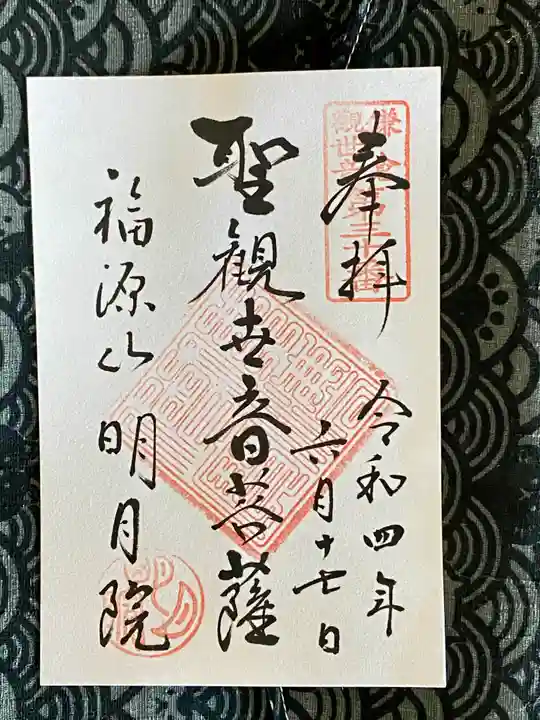 奉拝
令和四年
六月十七日
聖観世音菩薩
福源山明月院